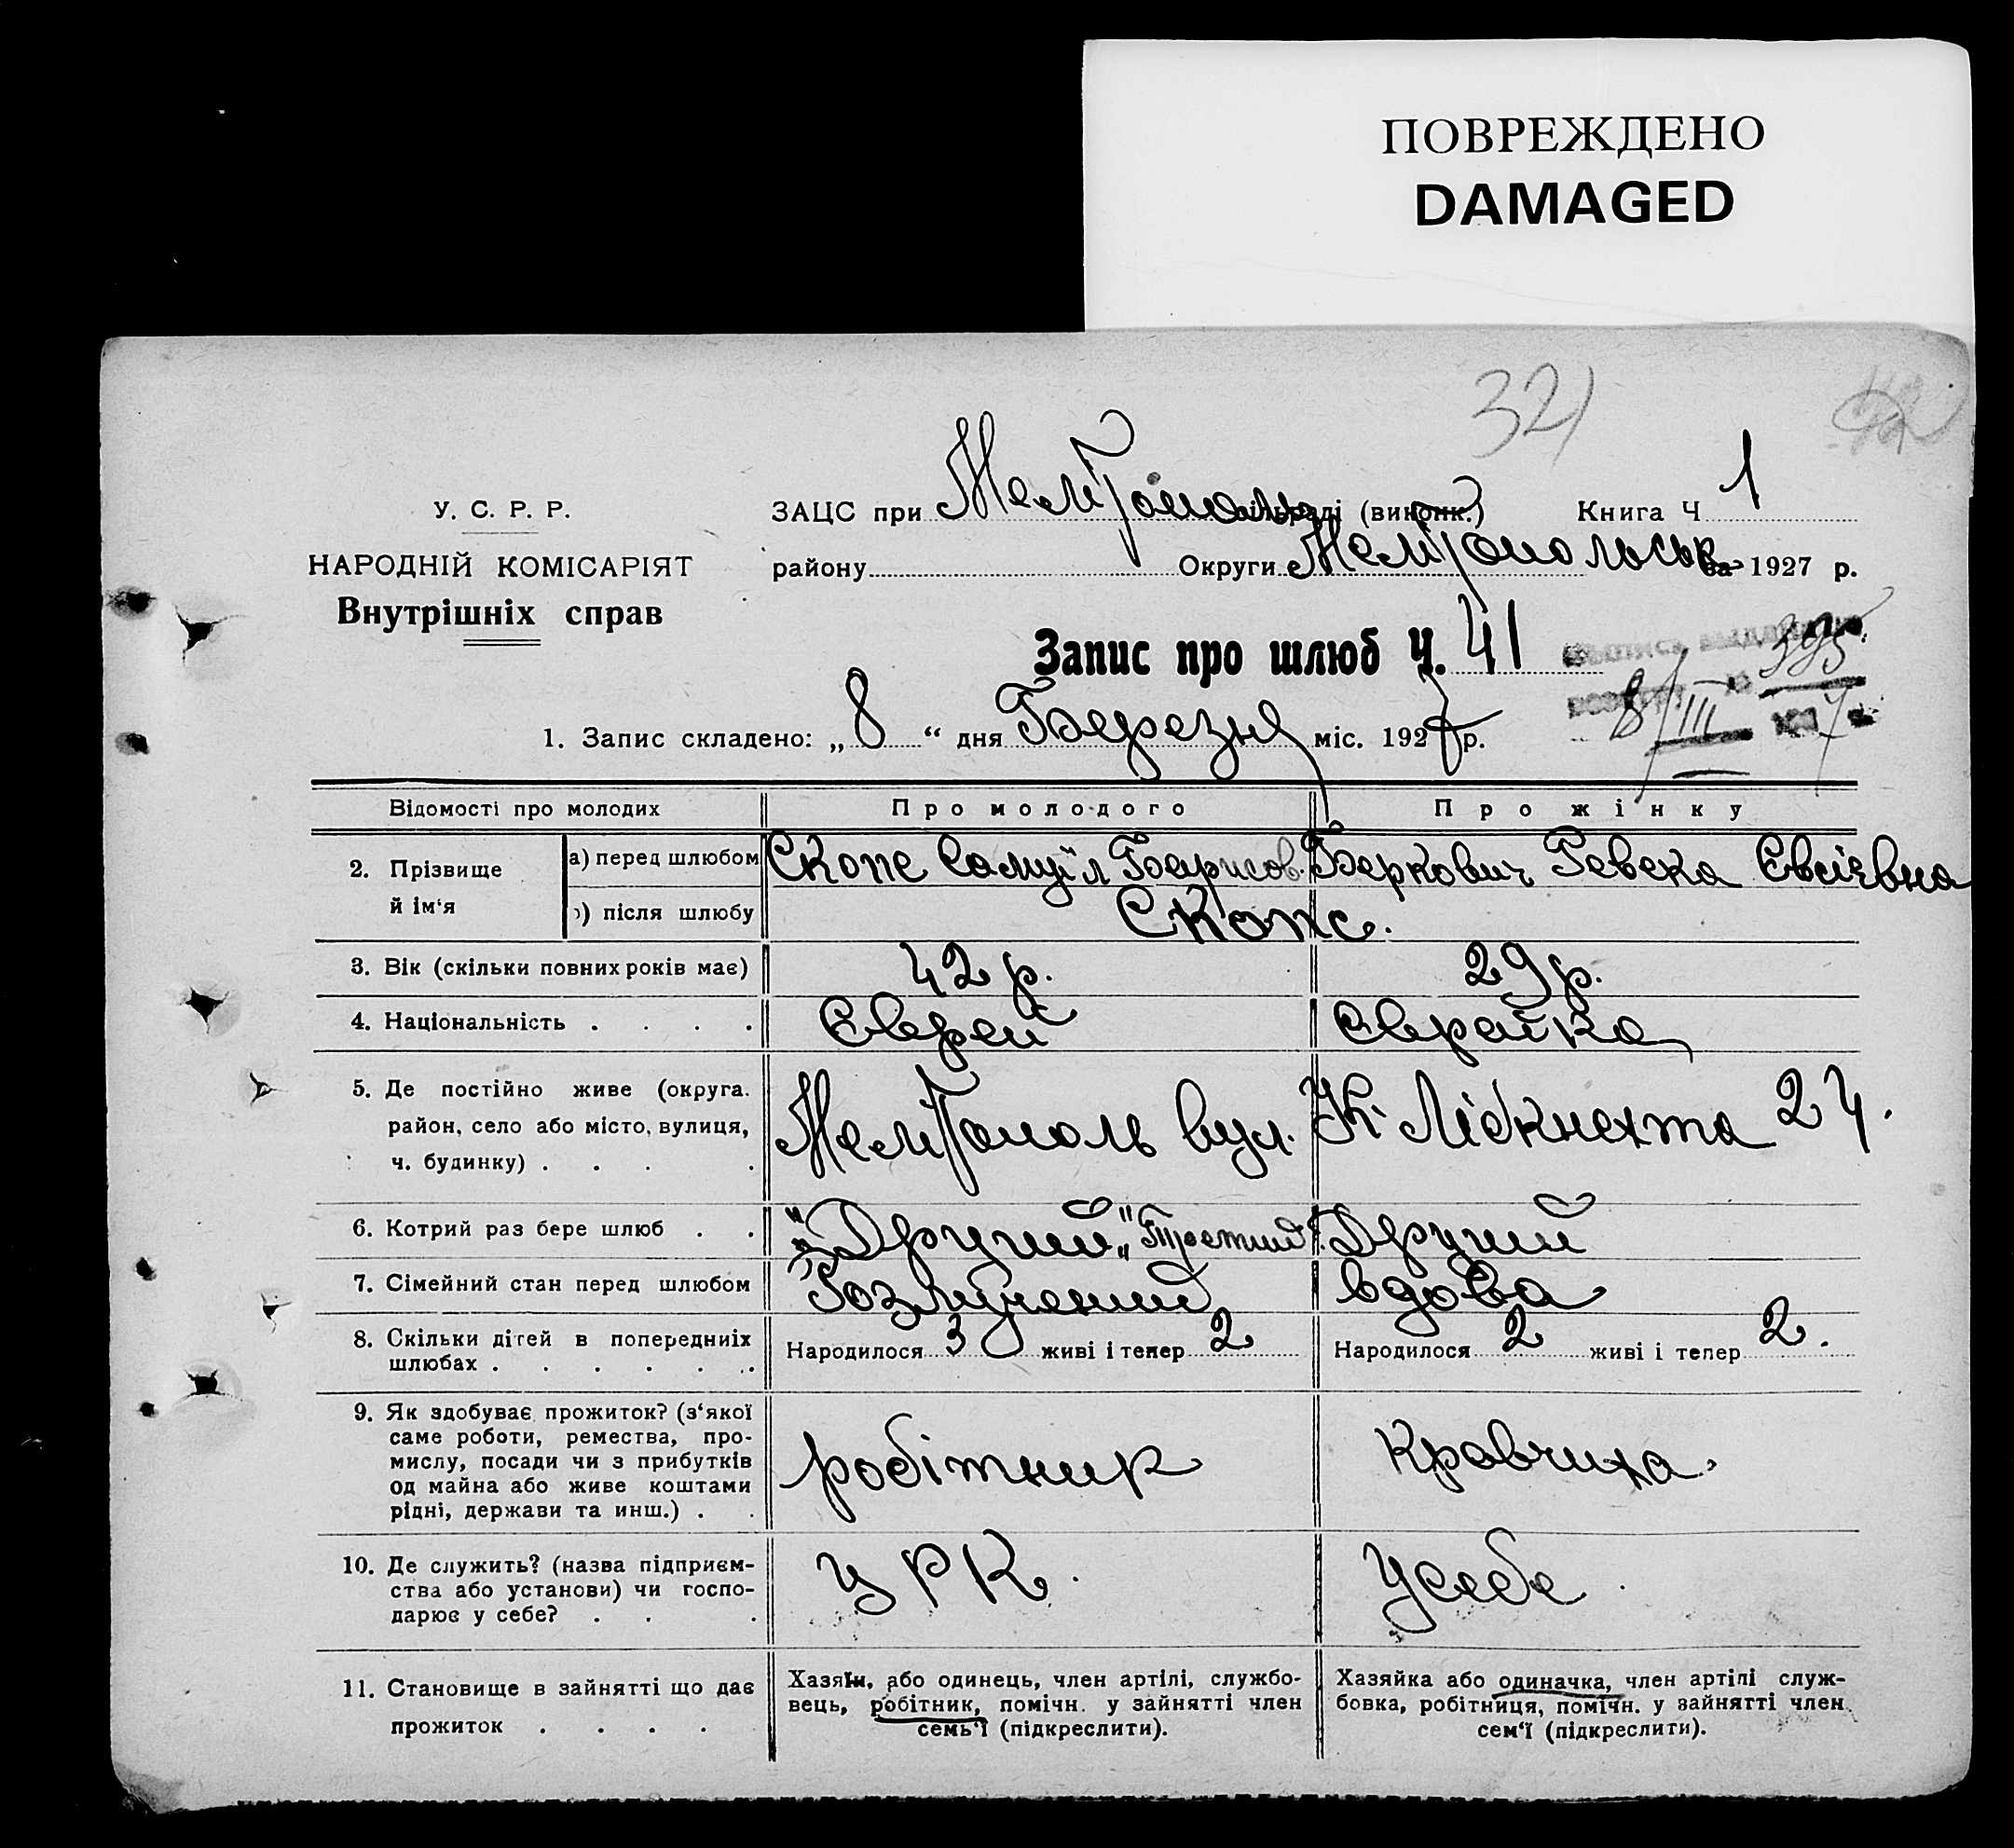 ПОВРЕЖДЕНО
DAMAGED
321
У. С. Р. Р.
НАРОДНІЙ КОМІСАРІЯТ
Внутрішніх справ
ЗАЦС при Мелітополь сільраді (виконк.) Книга Ч 1
району Округи Мелітопольськ за 1927 р.
Запис про шлюб Ч. 41
395
8/III 7
1. Запис складено: „ 8 “ дня Березня міс. 1927 р.
Відомості про молодих Про молодого Про жінку
2. Прізвище й ім‘я
а) перед шлюбом Скопс Самуїл Борисов. Беркович Ревека Євсієвна
б) після шлюбу Скопс.
3. Вік (скільки повних років має) 42 р. 29 р.
4. Національність . . . . Єврей Єврейка
5. Де постійно живе (округа.
район, село або місто, вулиця,
ч. будинку) . . . . Мелітополь вул. К. Лібкнехта 24.
6. Котрий раз бере шлюб . . „Другий“ „Третий“. Другий
7. Сімейний стан перед шлюбом Розлучений вдова
8. Скільки дітей в попередниіх
шлюбах . . . . . . Народилося 3 живі і тепер 2 Народилося 2 живі і тепер 2.
9. Як здобуває прожиток? (з‘якої
саме роботи, ремества, про-
мислу, посади чи з прибутків
од майна або живе коштами
рідні, держави та инш.) . . робітник Кравчиха.
10. Де служить? (назва підприєм-
ства або установи) чи госпо-
дарює у себе? . . . У Р К. Усебе
11. Становище в зайнятті що дає
прожиток . . . .
Хазяїн, або одинець, член артілі, службо-
вець, робітник, помічн. у зайнятті член
семь‘ї (підкреслити).
Хазяйка або одиначка, член артілі служ-
бовка, робітниця, помічн. у зайнятті член
сем‘ї (підкреслити).